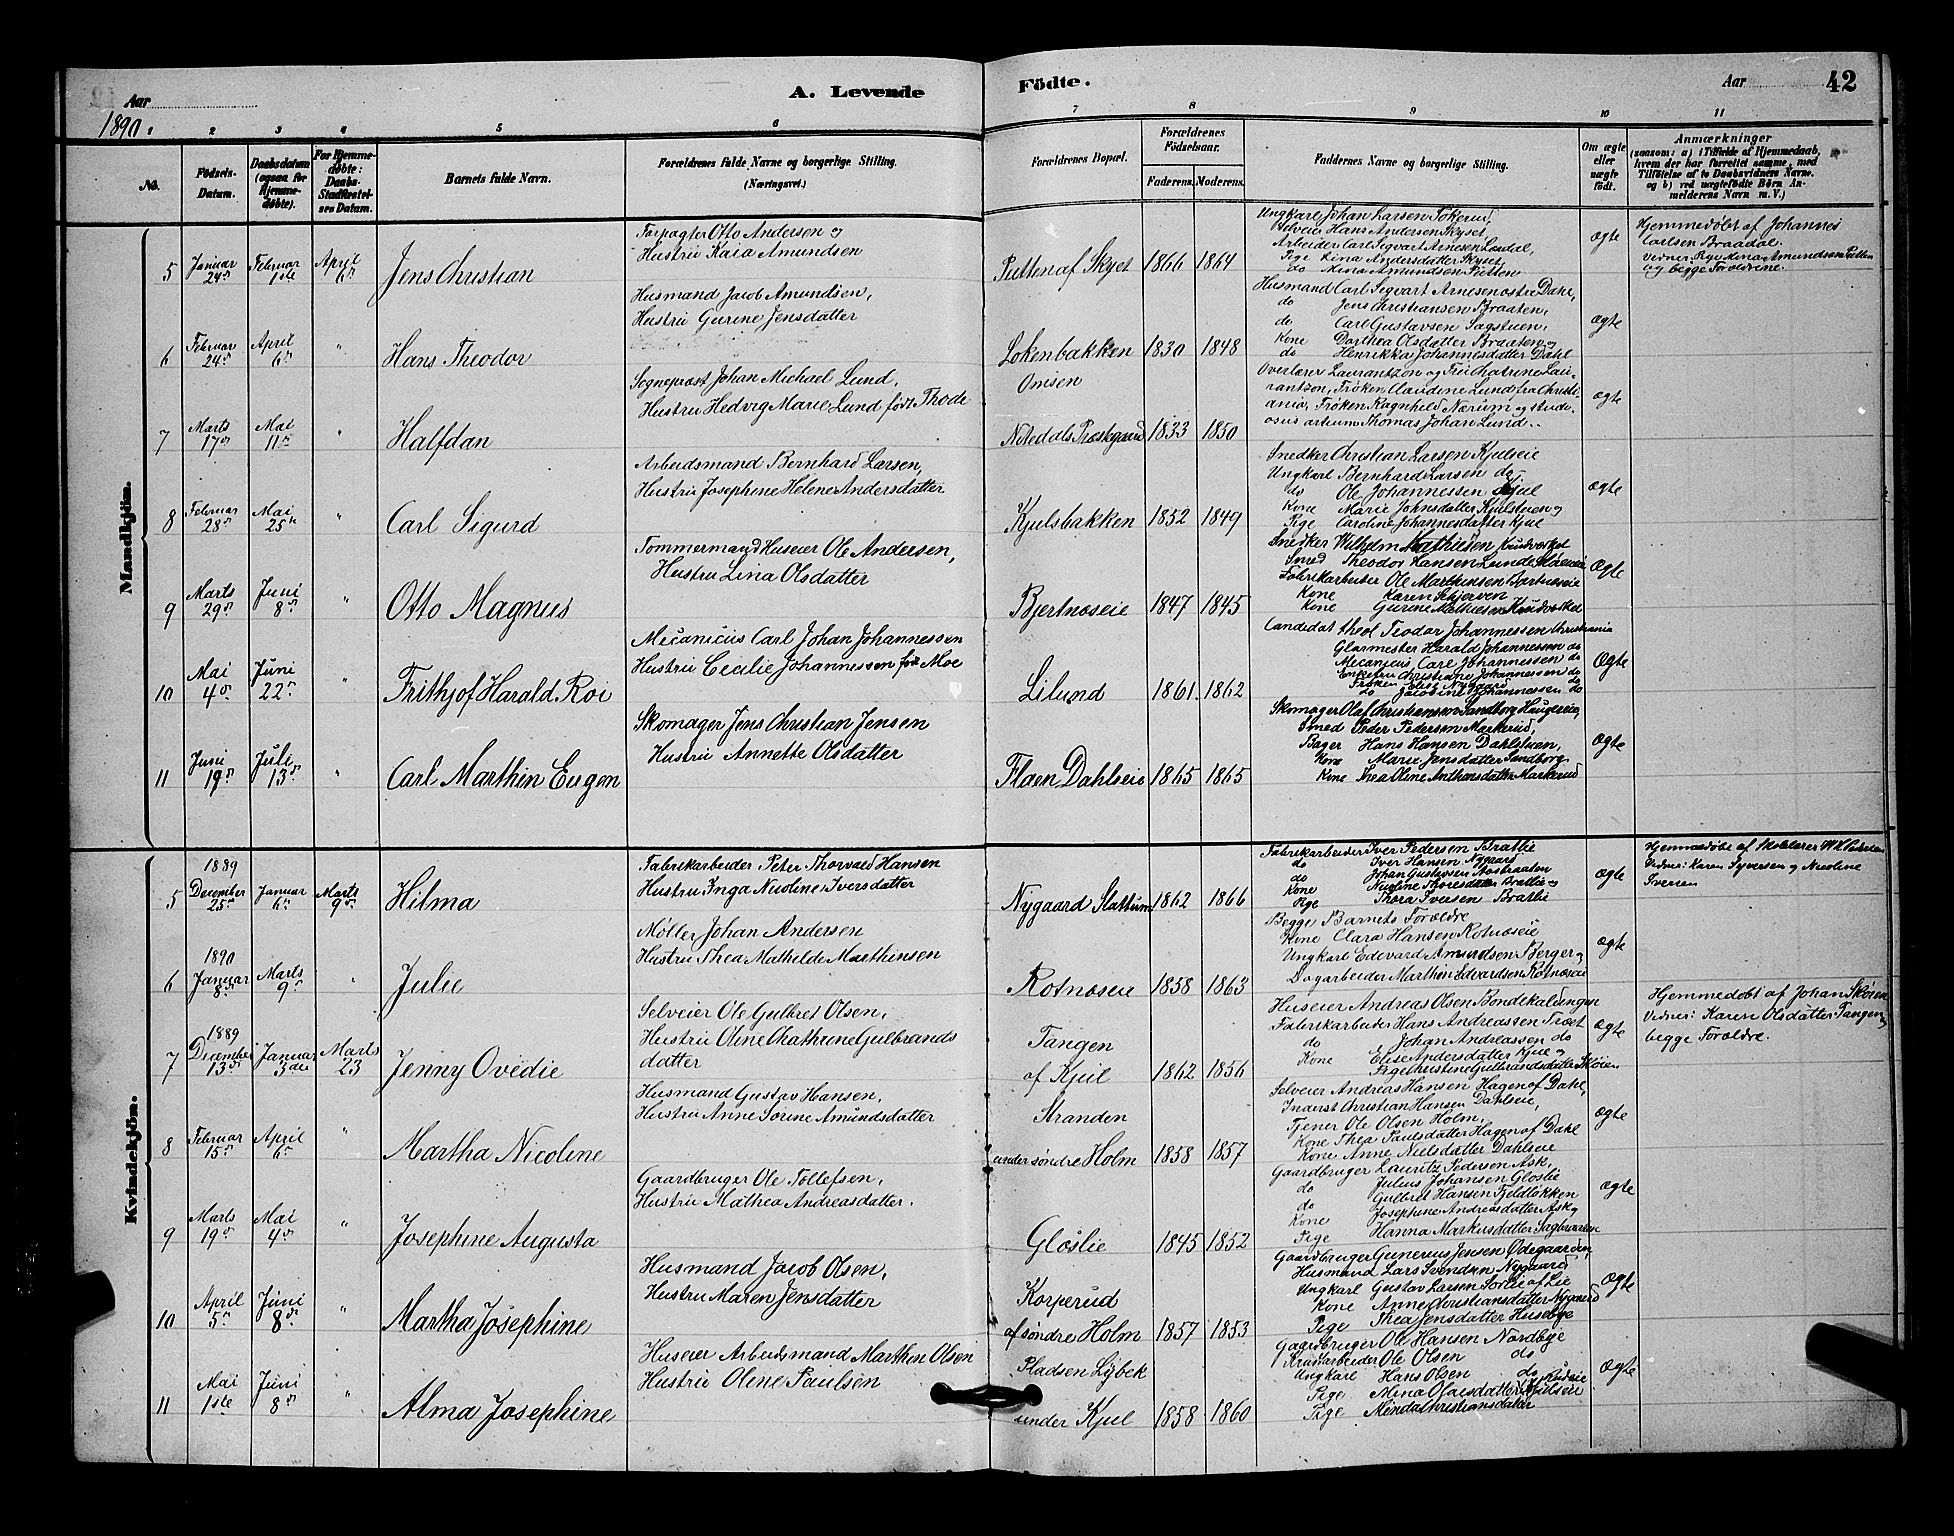 Aar
1890
A. Levende
Födte.
Aar
42
1 2 3 4 5 6 7 8 9 10 11
No.
Fødsels-Datum.
Daabsdatum (ogsaa for Hjemmedøbte).
For Hjemmedøbte: Daabs-Stadfæstelses Datum.
Barnets fulde Navn.
Forældrenes fulde Navne og borgerlige Stilling.
(Næringsvei.)
Forældrenes Bopæl.
Forældrenes Fødselsaar.
Faderens. Moderens.
Faddernes Navne og borgerlige Stilling.
Om ægte eller uægte født.
Anmærkninger
(saasom: a) i Tilfælde af Hjemmedaab, hvem der har forrettet samme, med Tilføielse af to Daabsvidners Navne, og b) ved uægtefødte Børn Anmelderens Navn m. V.)
Mandkjön.
5 Januar 24de Februar 1ste April 6te Jens Christian
Forpagter Otto Andersen og
Hustru Kaia Amundsen
Putten af Skyset 1866 1864
Ungkarl Johan Larsen
Selveier Hans Andersen Skyset
Arbeider Carl Sigvart Arnesen
Pige Lina Andersdatter Skyset,
do Mina Amundsen Putten
Ægte
Hjemmedøbt af Johannes
Carlsen Braadal.
Vidner: Pige Mina Amundsen Putten
og begge Forældrene.
6 Februar 24de April 6te " Hans Theodor
Husmand Jacob Amundsen,
Hustru Gurine Jensdatter
Lokenbakken 1830 1848
Husmand Carl Sigvart Arnesen østre Dahl,
do Jens Christiansen Braaten,
do Carl Gustavsen Sagstuen,
Kone Dorthea Olsdatter Braaten og
do Henrikka Johannesdatter Dahl
Ægte
7 Marts 17de Mai 11te " Halfdan
Sogneprest Johan Michael Lund,
Hustru Hedvig Marie Lund født Thode
Nitedals Præstgaard 1833 1850
Overlærer Laurantzon og Frue Chatrine Lau-
rantzon, Frøken Claudine Lund fra Christi-
ania, Frøken Ragnhild Nærum og stude-
osus artium Thomas Johan Lund.
Ægte
8 Februar 28de Mai 25te " Carl Sigurd
Arbeidsmand Bernhard Larsen,
Hustru Josephine Helene Andersdatter
Kjulsbakken 1852 1849
Snedker Christian Larsen Kjulseie
Ungkarl Bernhard Larsen do
do Ole Johannessen Kjul
Kone Marie Johnsdatter Kjulstuen og
Pige Caroline Johannesdatter Kjul
Ægte
9 Marts 29de Juni 8de " Otto Magnus
Tømmermand Huseier Ole Andersen,
Hustru Lina Olsdatter
Bjertnæseie 1847 1845
Snedker Wilhelm Mathiesen Krudværket
Smed Theodor Hansen
Fabrikarbeider Ole Marthinsen
Kone Karen Skjerven
Kone Gurine Mathiesen Krudværket
Ægte
10 Mai 4de Juni 22de " Frithjof Harald Roi
Mecanicus Carl Johan Johannessen
Hustru Cecilie Johannessen født Moe
Lilund 1861. 1862
Candidat theol Teodor Johannessen Christiania
Glarmester Harald Johannessen do
Mecanicus Carl Johannessen do
Enkefru Christiane Johannessen do
Frøken Elise Nygaard do
do Jacobine Johannessen do
Ægte
11 Juni 19de Juli 13de " Carl Marthin Eugen
Skomager Jens Christian Jensen
Hustru Annette Olsdatter
Flaen Dahlseie 1865 1865
Skomager Olaf Christiansen Sandborg Haugereie,
Smed Peder Pedersen Markerud,
Bager Hans Hansen Dahlstuen,
Kone Marie Jensdatter Sandborg
Kone Thea Oline Anthonsdatter Markerud
Ægte
Kvindekjön.
5 1889 December 25de Januar 6te Marts 9de Hilma
Fabrikarbeider Peter Thorvald Hansen
Hustru Inga Nicoline Iversdatter
Nygaard Slattum 1862 1866
Fabrikarbeider Iver Pedersen Brathie
do Iver Hansen Nygaard
do Johan Gustavsen
Kone Nicoline Thoresdatter Brathie og
Pige Thora Iversen Brathie
Ægte
Hjemmedøbt af Skolelærer
Vidner: Karen Syversen og Nicoline
Iversen
6 1890 Januar 8de Marts 9de " Julie
Møller Johan Andersen
Hustru Thea Mathilde Marthinsen
Rotnæseie 1858 1863
Begge Barnets Forældre
Kone Clara Hansen Rotnæseie
Ungkarl Edevard Amundsen Berger og
Dagarbeider Marthin Edvardsen Rotnæseie
Ægte
7 1889 December 13de Januar 3die Marts 23 Jenny Ovedie
Selveier Ole Gulbret Olsen,
Hustru Oline Chathrine Gulbrands
datter
Tangen
af Kjul 1862 1856
Huseier Andreas Olsen Bondekalungen
Fabrikarbeider Hans Andreassen Træet
do Johan Andreassen do
Kone Elise Andersdatter Kjul og
Pige Christine Gulbrandsdatter Skøien
Ægte
Hjemmedøbt af Johan Skøien
Vidner: Karen Olsdatter Tangen og
begge Forældre.
8 Februar 15de April 6te " Martha Nicoline
Husmand Gustav Hansen,
Hustru Anne Sorine Amundsdatter
Stranden
under søndre Holm 1858 1857
Selveier Andreas Hansen Hagen af Dahl,
Inderst Christian Hansen Dahlseie,
Tjener Ole Olsen Holm,
Kone Thea Paulsdatter Hagen af Dahl
Kone Anne Nielsdatter Dahlseie
Ægte
9 Marts 19de Mai 4de " Josephine Augusta
Gaardbruger Ole Tollefsen,
Hustru Mathea Andreasdatter.
Gloslie 1845 1852
Gaardbruger Lauritz Pedersen Ask,
do Julius Johansen Gloslie
do Gulbret Hansen Fjeldløkken
Kone Josephine Andreasdatter Ask og
Pige Hanna Markusdatter
Ægte
10 April 5te Juni 8de " Martha Josephine
Husmand Jacob Olsen,
Hustru Maren Jensdatter
Korperud
af søndre Holm 1857 1853
Gaardbruger Gunerius Jensen Ødegaarden,
Husmand Lars Svendsen Nygaard
Ungkarl Gustav Larsen Sørlie af Lie
Kone Anne Christiansdatter Nygaard
Pige Thea Jensdatter Husebye
Ægte
11 Mai 1ste Juni 8de " Alma Josephine
Huseier Arbeidsmand Marthin Olsen
Hustru Oline Paulsen
Pladsen Lybek
under Kjul 1858 1860
Gaardbruger Ole Hansen Nordbye
Krudarbeider Ole Olsen do
Ungkarl Hans Olsen do
Pige Mina Olavesdatter
Pige Minda Christiansdatter
Ægte